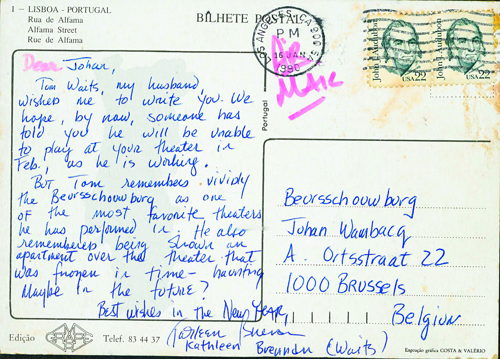 1 – LISBOA - PORTUGAL
Rua de Alfama
Alfama Street
Rue de Alfama
BILHETE POSTAL
LOS ANGELES, CA
PM
16 JAN
1990
Air
MAIL
John J. Audubon
USA 22
John J. Audubon
USA 22
Portugal
Dear Johan,
Tom Waits, my husband,
wished me to write you. We
hope, by now, someone has
told you he will be unable
to play at your theater in
Feb., as he is working.
But Tom remembers vividly
the Beursschouwburg as one
of the most favorite theaters
he has performed in. He also
remembered being shown an
apartment over that theater that
was frozen in time - haunting
Maybe in the future?
Best wishes in the New Year,
Kathleen Brennan
Kathleen Brennan (Waits)
Beursschouwburg
Johan Wambacq
A. Ortsstraat 22
1000 Brussels
Belgium
Edição
Telef. 83 44 37
Exposição gráfica COSTA & VALÉRIO